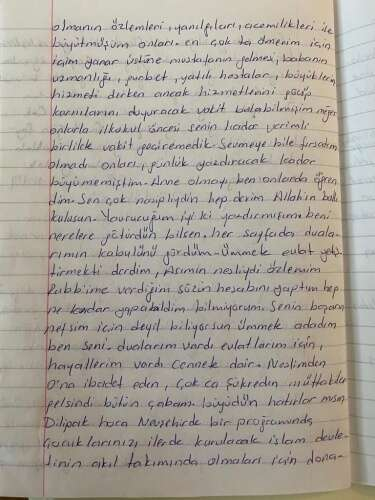 olmanın özlemleri, yanılgıları, acemilikleri ile
büyütmüşüm onları. en çok ta Ömerim için
içim yanar üstüne mustafanın gelmesi, babanın
uzmanlığı, gurbet, yatılı hastalar, büyüklerin
hizmeti derken ancak hizmetlerini
karınlarını doyuracak vakit bulabilmişim meğer
onlarla ilkokul öncesi senin kadar verimli
birlikde vakit geçiremedik Sevmeye bile fırsatım
olmadı onları, günlük yazdıracak kadar
büyümemiştim. Anne olmayı ben onlarda öğren
dim. Sen çok nasiplıydin hep derim Allahın
kulusun. Yavrucuğum iyi ki yazdırmışım beni
nerelere götürdün bilsen. her sayfada duala-
rımın kabulünü gördüm. Ümmete evlat yetiş
tirmekti derdim, Asımın nesliydi özlemim
Rabb'ime verdiğim sözün hesabını yaptım hep
ne kadar yapabildim bilmiyorum. Senin başarın
nefsim için deyil biliyorsun Ümmete adadım
ben seni. dualarım vardı evlatlarım için,
hayallerim vardı Cennete dair. Neslimden
O'na ibadet eden, çok ca şükreden müttakiler
gelsindi bütün çabam. büyüdün hatırlar mısın
Dilipak hoca Nevşehirde bir programında
çocuklarınızı ilerde kurulacak islam devle-
tinin akıl takımında olmaları için dona-